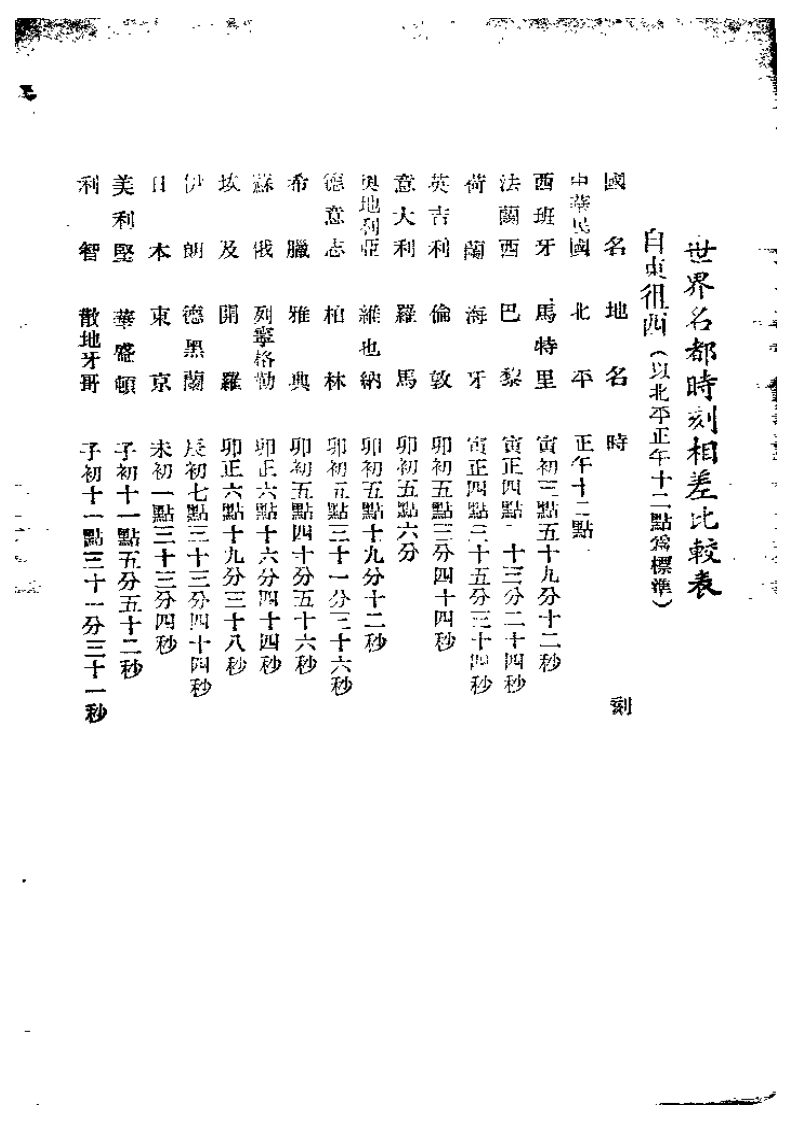 世界名都時刻相差比較表
自東徂西（以北平正午十二點爲標準）
國名 地名 時刻
中華民國 北平 正午十二點
西班牙 馬特里 寅初三點五十九分十二秒
法蘭西 巴黎 寅正四點二十三分二十四秒
荷蘭 海牙 寅正四點三十五分三十四秒
英吉利 倫敦 卯初五點三分四十四秒
意大利 羅馬 卯初五點六分
奥地利亞 維也納 卯初五點十九分十二秒
德意志 柏林 卯初五點三十一分三十六秒
希臘 雅典 卯初五點四十分五十六秒
蘇俄 列寧格勒 卯正六點十六分四十四秒
埃及 開羅 卯正六點十九分三十八秒
伊朗 德黑蘭 辰初七點三十三分四十四秒
日本 東京 未初一點三十三分四秒
美利堅 華盛頓 子初十一點五分五十二秒
利智 散地牙哥 子初十一點三十一分三十一秒